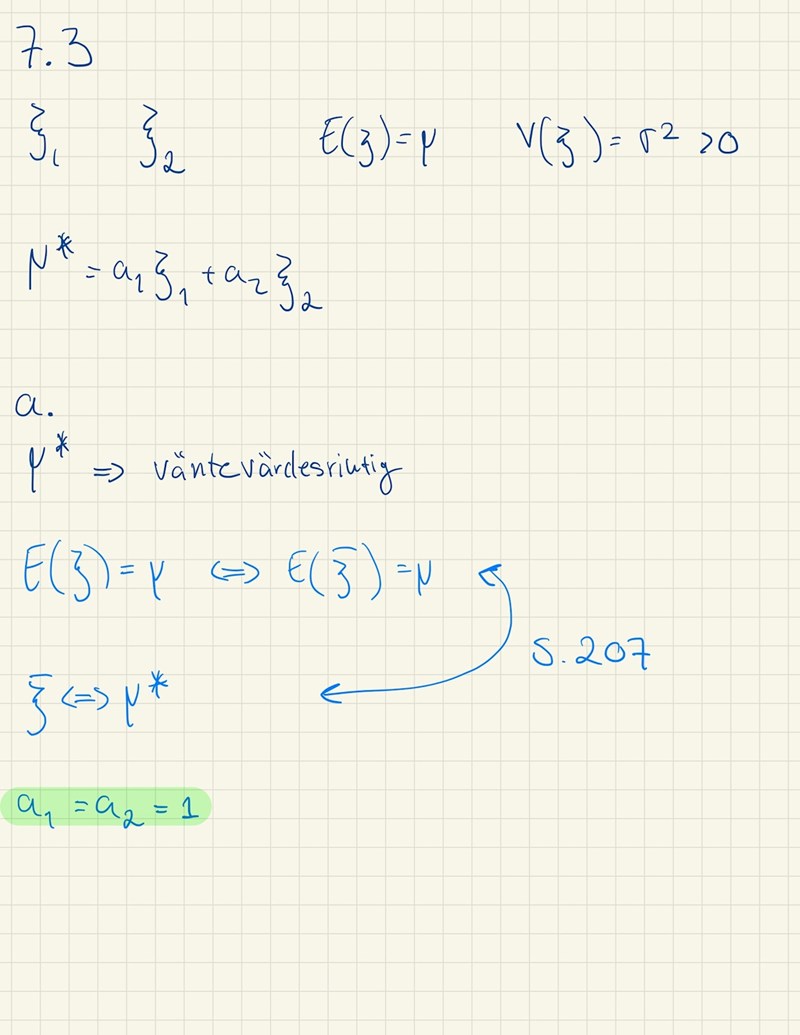 7.3
ξ₁ ξ₂ E(ξ) = μ V(ξ) = σ² > 0
μ* = a₁ξ₁ + a₂ξ₂
a.
μ* => väntevärdesriktig
E(ξ) = μ <=> E(ξ̄) = μ
S. 207
ξ̄ <=> μ*
a₁ = a₂ = 1